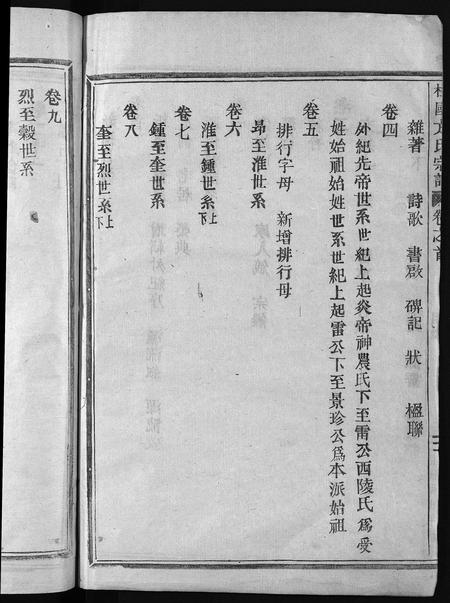 方氏宗譜 卷之首
雜著 詩歌 書啟 碑記 狀 楹聯
卷四
外紀先帝世系世紀上起炎帝神農氏下至雷公西陵氏為受
姓始祖始姓世系世紀上起雷公下至景珍公為本派始祖
卷五
排行字母 新增排行母
昂至淮世系
卷六
淮至鍾世系上下
卷七
鍾至奎世系
卷八
奎至烈世系上下
卷九
烈至穀世系